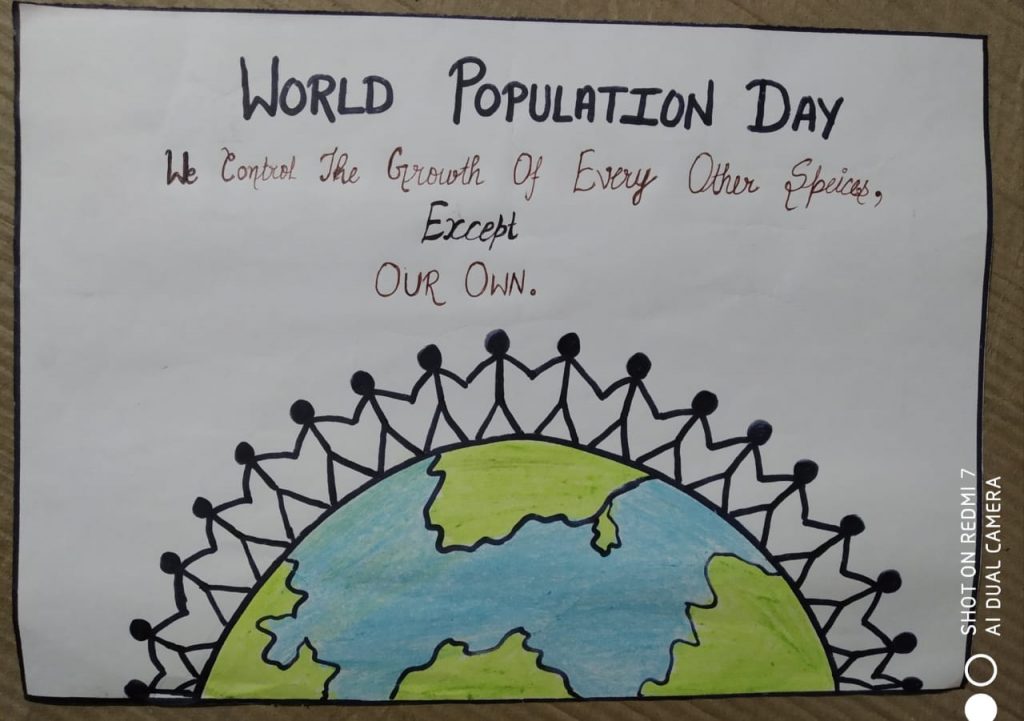 WORLD POPULATION DAY
We Control The Growth Of Every Other Speices,
Except
OUR OWN.
SHOT ON REDMI 7
AI DUAL CAMERA